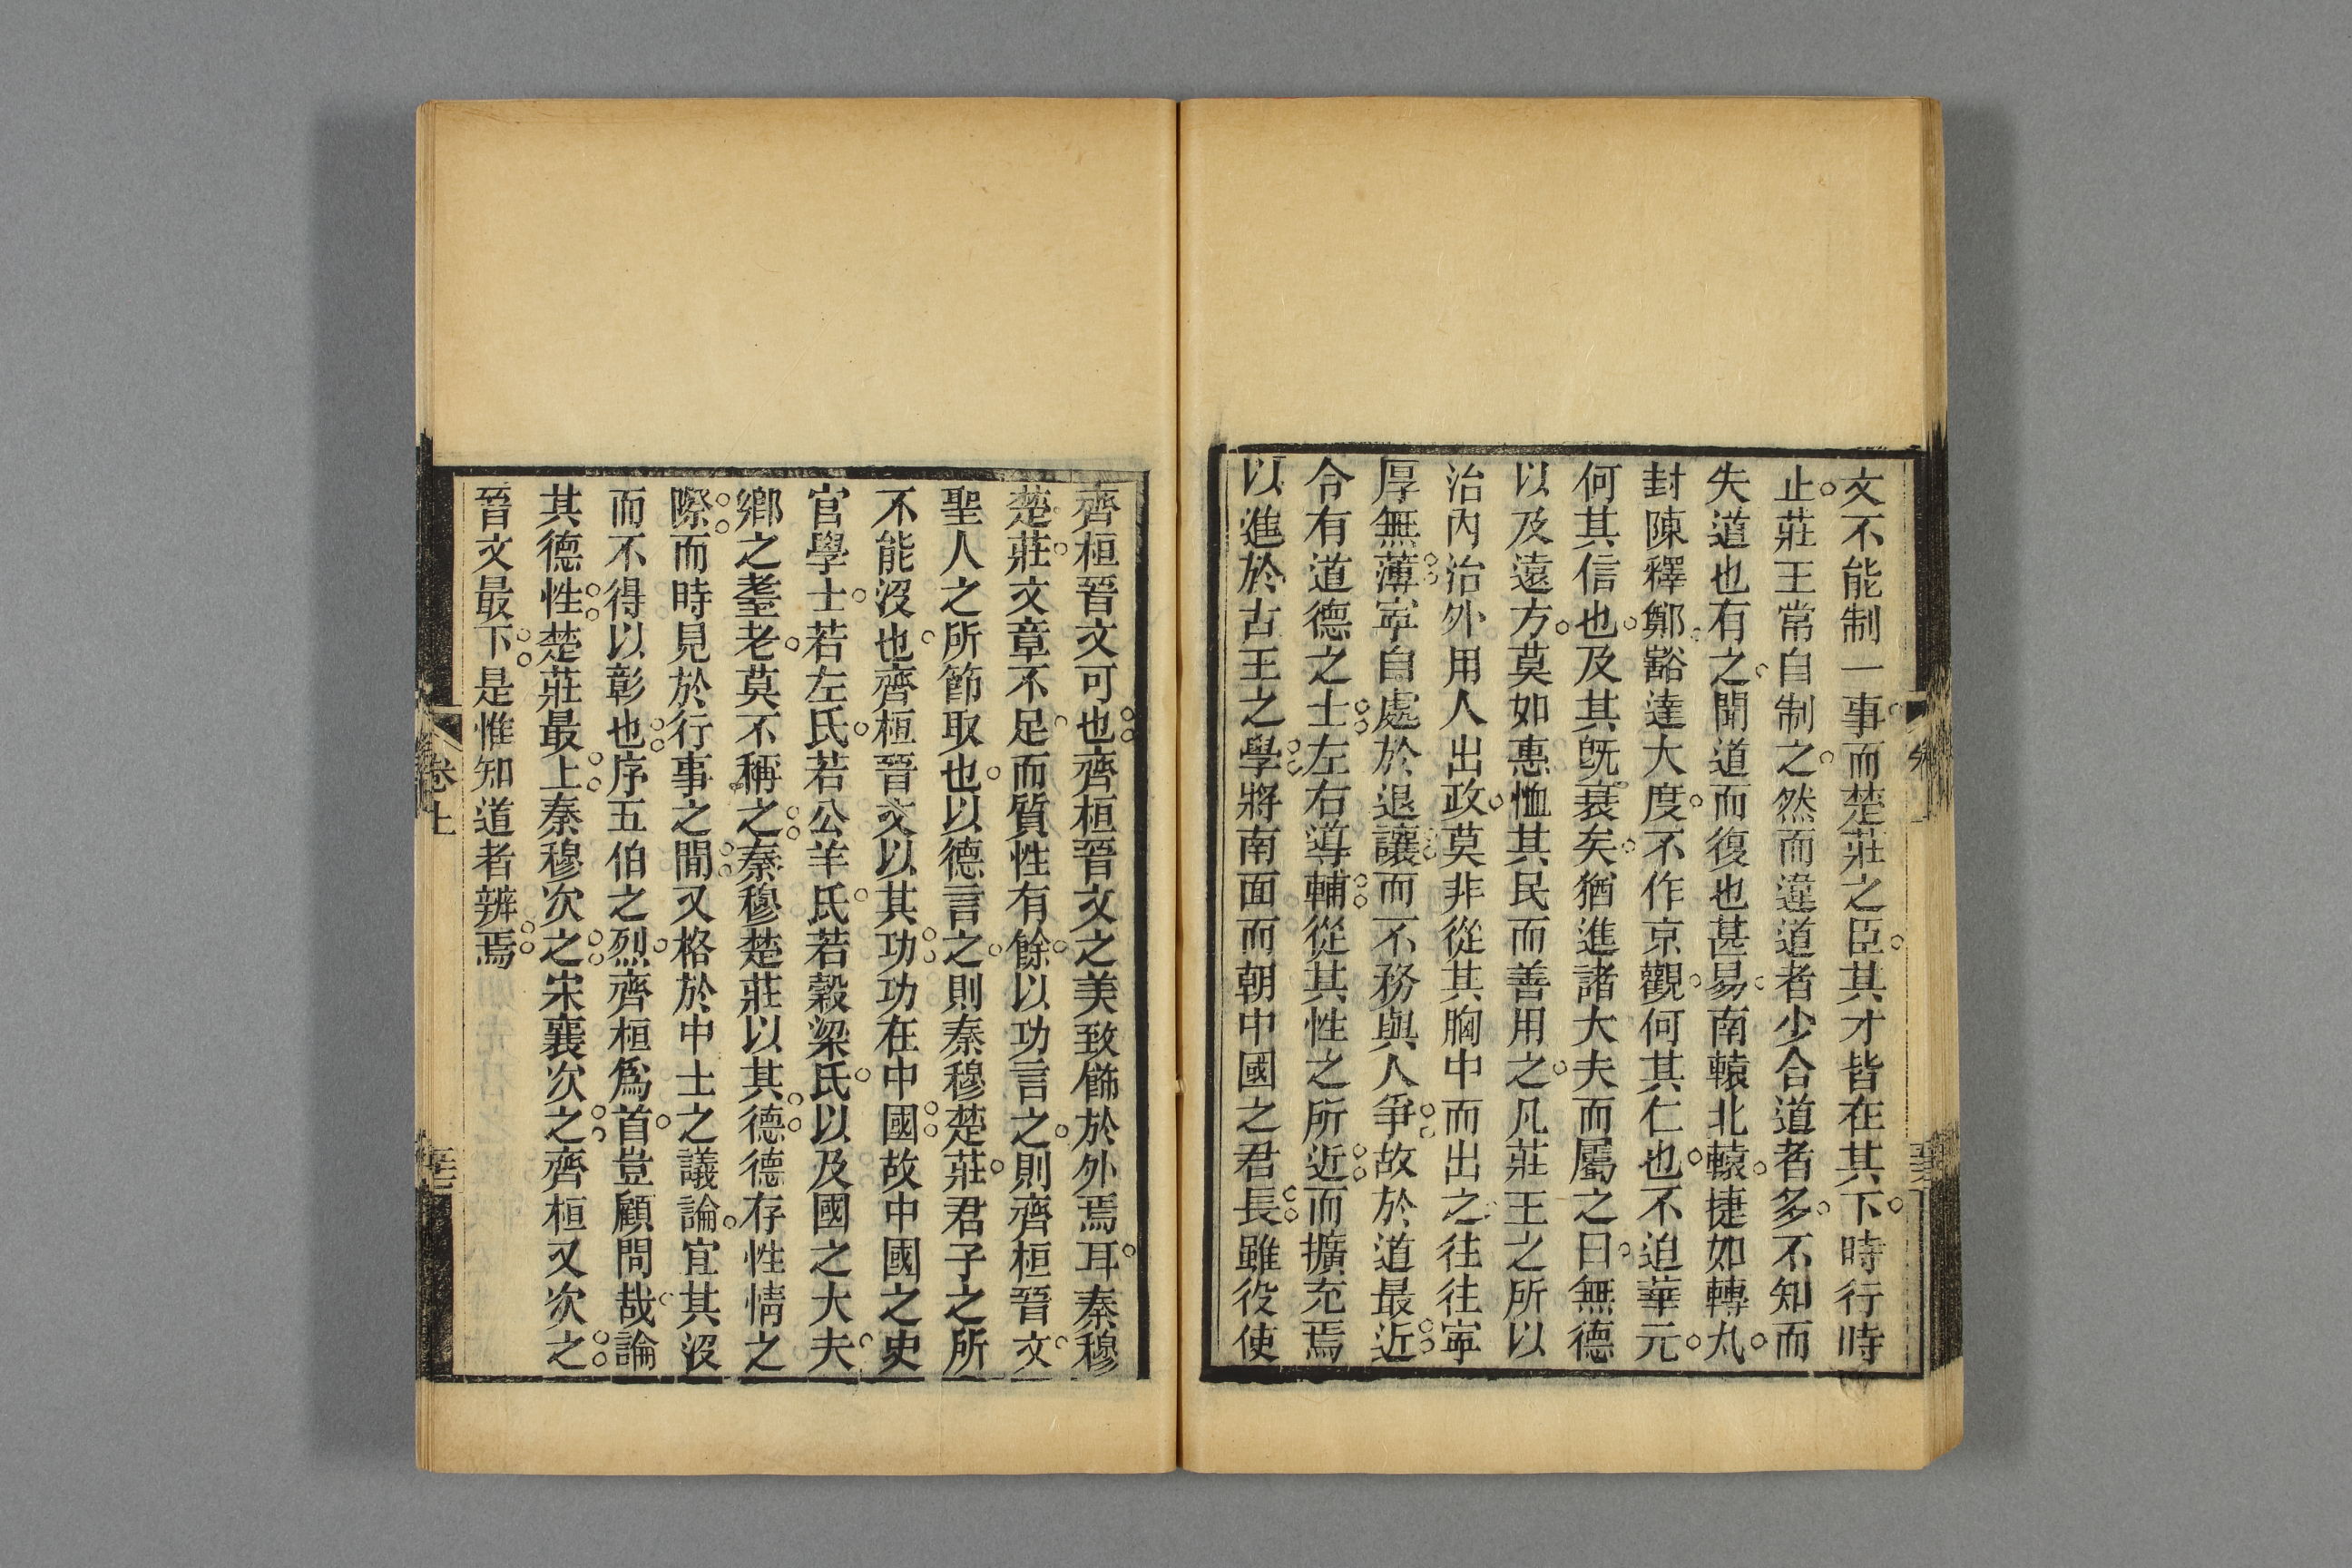 文不能制一事而楚莊之臣其才皆在其下時行時
止莊王常自制之然而違道者少合道者多不知而
失道也有之聞道而復也甚易南轅北轅捷如轉丸
封陳釋鄭豁達大度不作京觀何其仁也不迫華元
何其信也及其旣衰矣猶進諸大夫而屬之曰無德
以及遠方莫如惠恤其民而善用之凡莊王之所以
治內治外用人出政莫非從其胸中而出之往往寜
厚無薄寜自處於退讓而不務與人爭故於道最近
令有道德之士左右導輔從其性之所近而擴充焉
以進於古王之學將南面而朝中國之君長雖役使
齊桓晉文可也齊桓晉文之美致飾於外焉耳秦穆
楚莊文章不足而質性有餘以功言之則齊桓晉文
聖人之所節取也以德言之則秦穆楚莊君子之所
不能沒也齊桓晉文以其功功在中國故中國之史
官學士若左氏若公羊氏若穀梁氏以及國之大夫
鄉之耋老莫不稱之秦穆楚莊以其德德存性情之
際而時見於行事之間又格於中士之議論宜其沒
而不得以彰也序五伯之烈齊桓爲首豈顧問哉論
其德性楚莊最上秦穆次之宋襄次之齊桓又次之
晉文最下是惟知道者辨焉
卷上